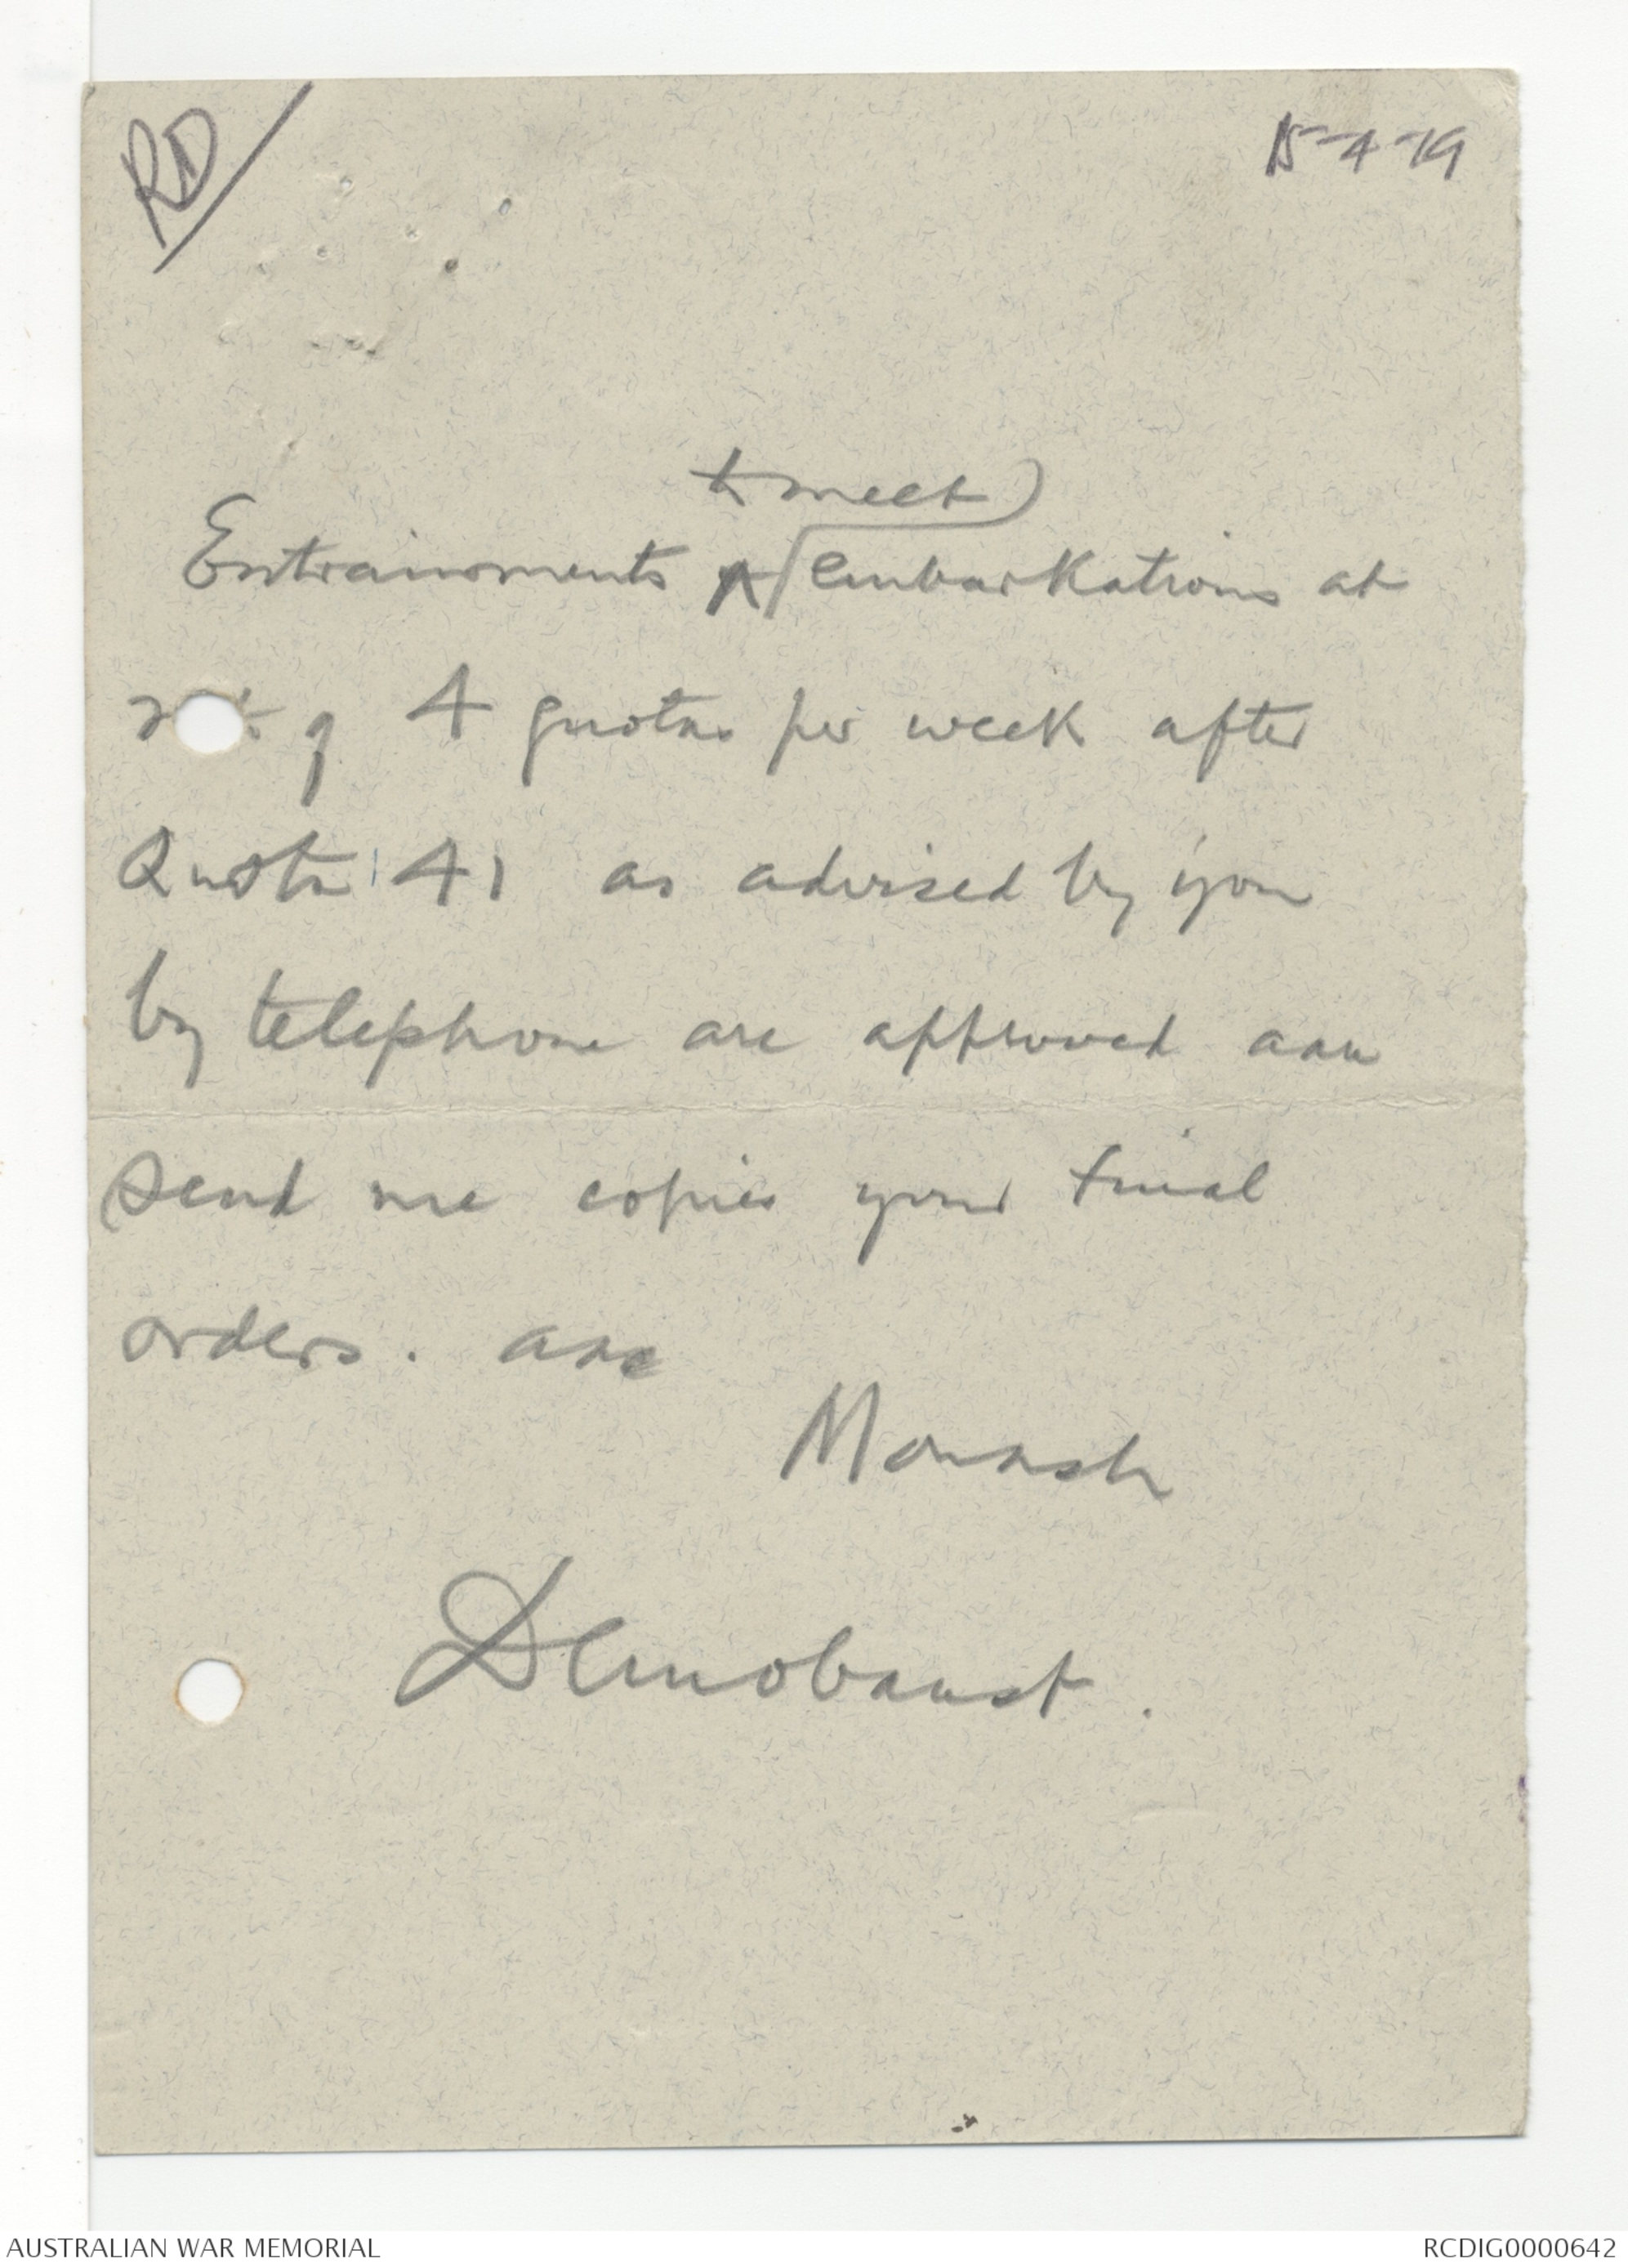 RD
15-4-19
to meet
Entrainments embarkations at
rate of 4 quotas per week after
Quota 41 as advised by you
by telephone are approved aaa
send me copies your final
orders. aaa
Monash
Demobaust.
AUSTRALIAN WAR MEMORIAL
RCDIG0000642